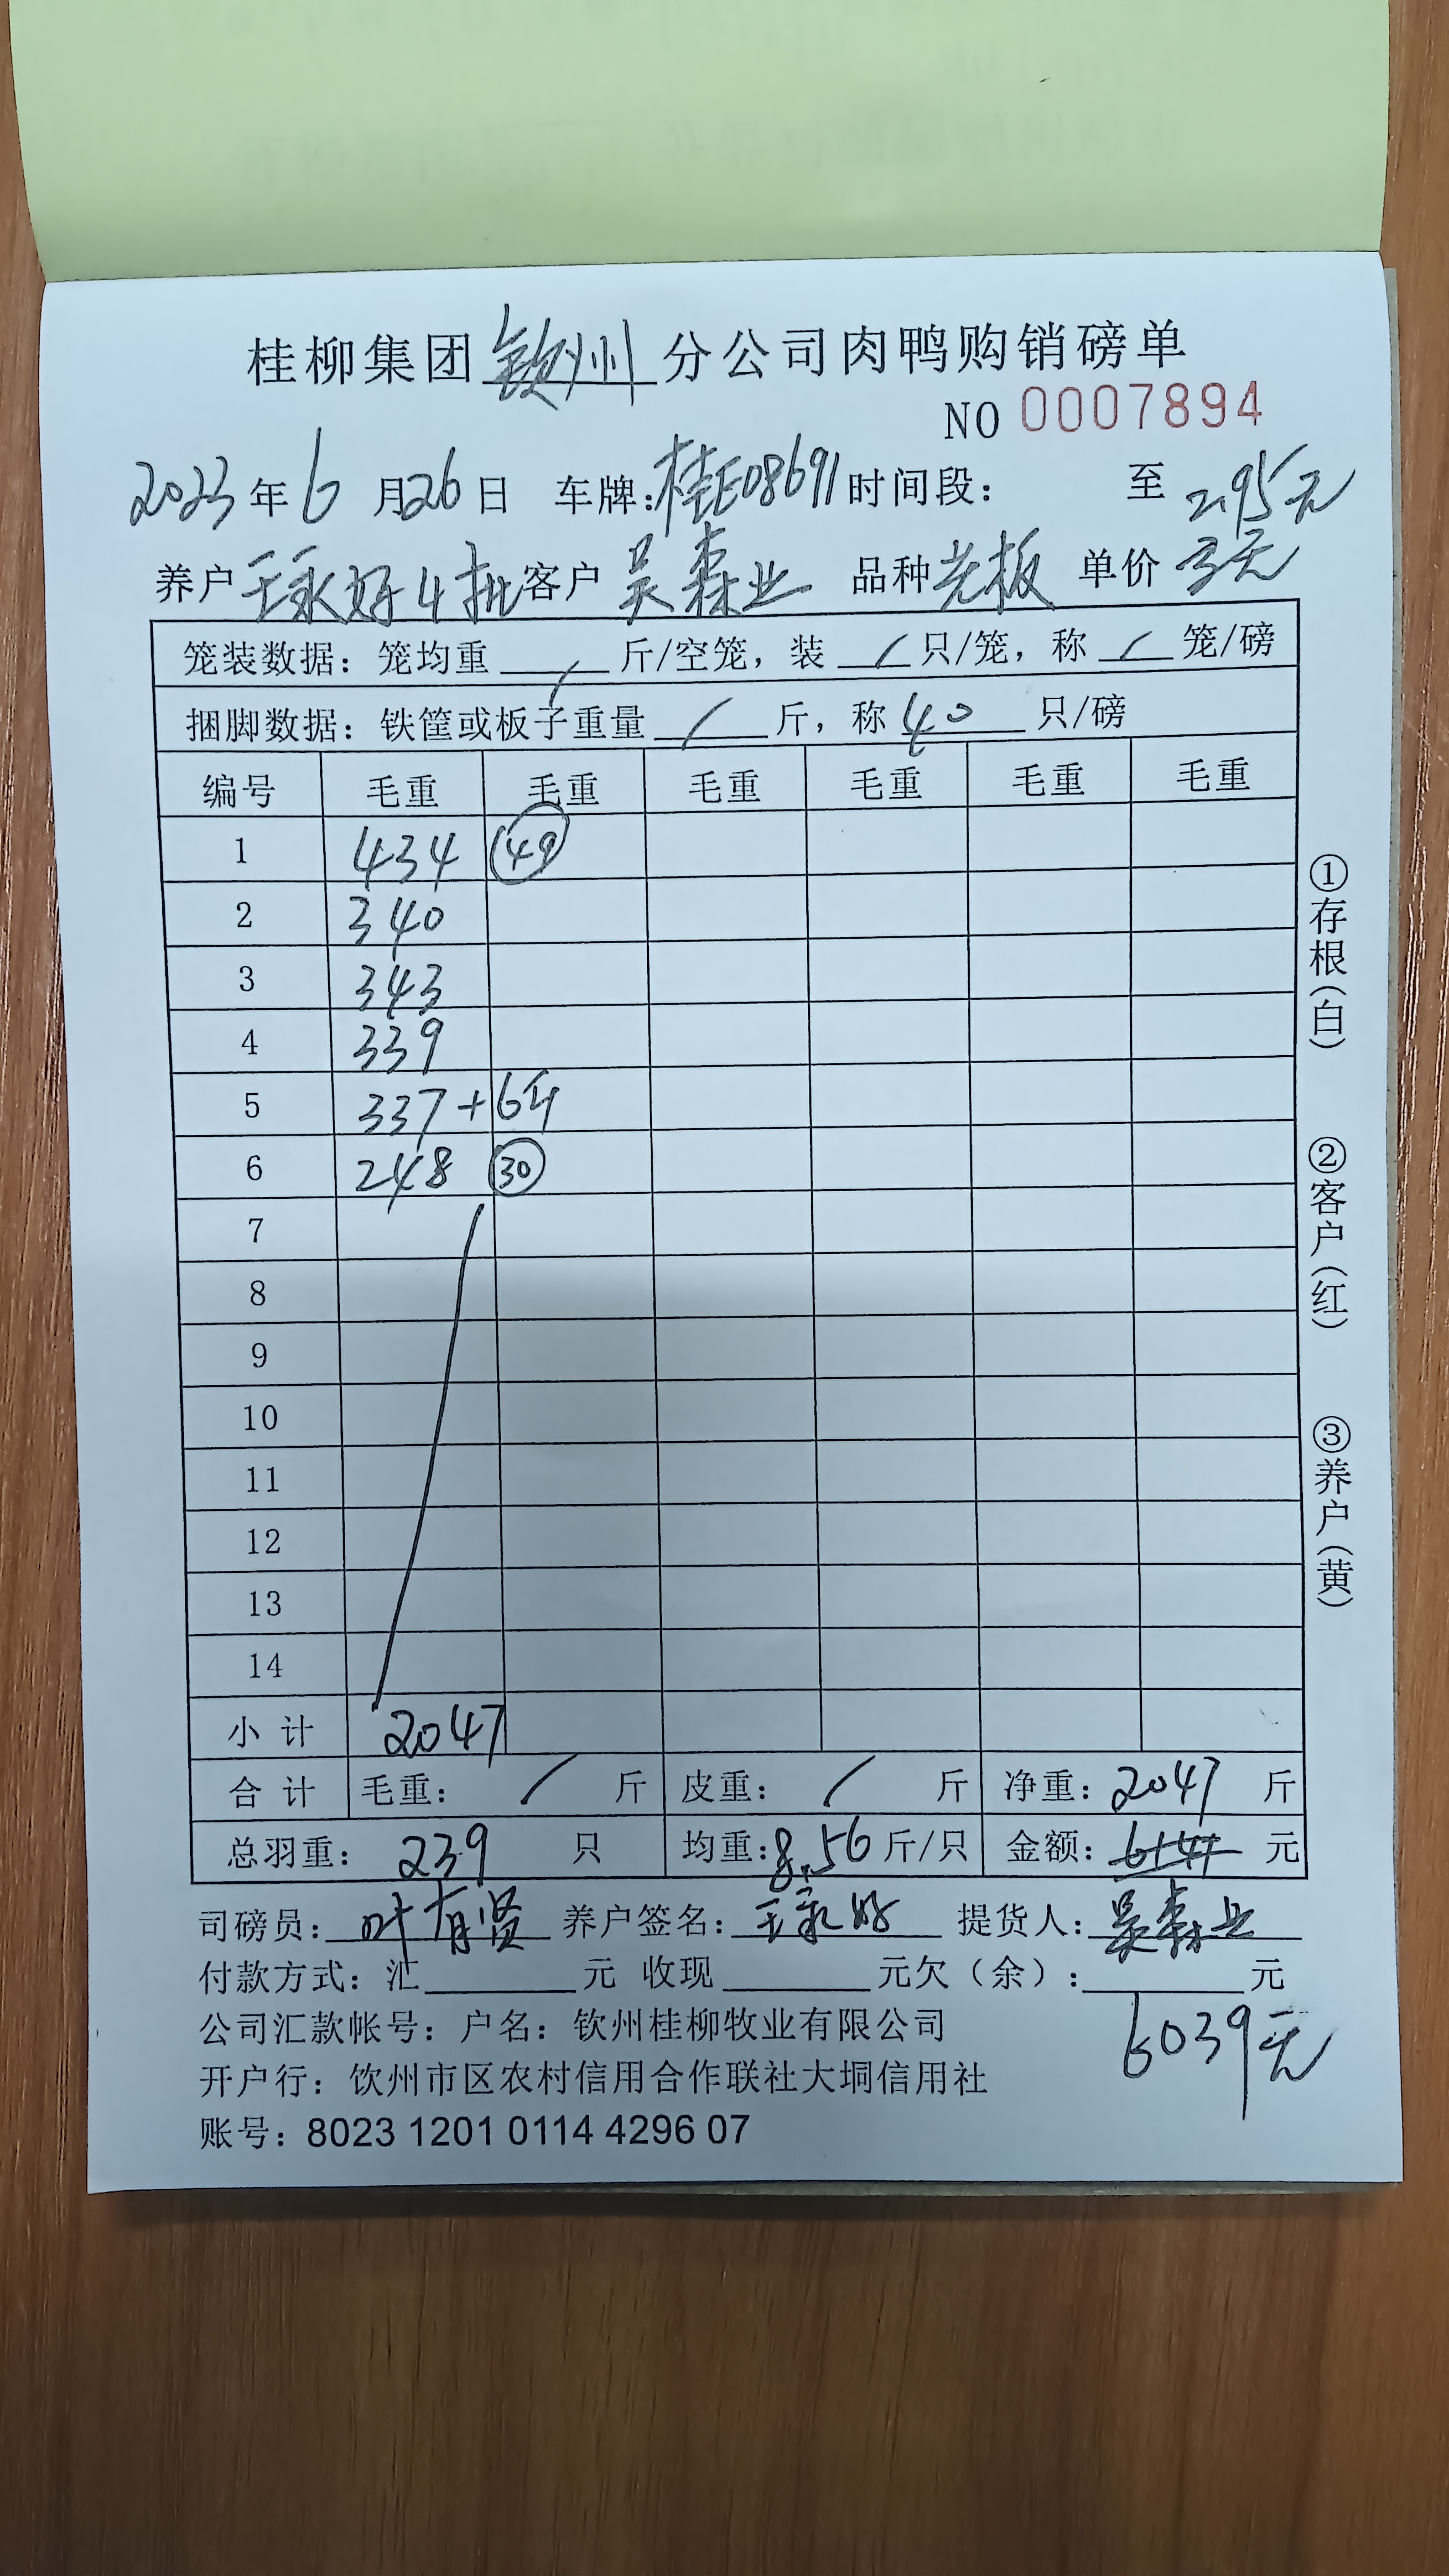 桂柳集团钦州分公司肉鸭购销磅单
NO 0007894
2023年6月26日 车牌:桂E08691 时间段: 至 2.95元
养户 王永好4批 客户 吴森业 品种 老板 单价 3元
笼装数据:笼均重 / 斤/空笼,装 / 只/笼,称 / 笼/磅
捆脚数据:铁筐或板子重量 / 斤,称 40 只/磅
编号 毛重 毛重 毛重 毛重 毛重 毛重
1 434 49
2 340
3 343
4 339
5 337+6斤
6 248 30
7
8
9
10
11
12
13
14
小计 2047
合计 毛重: / 斤 皮重: / 斤 净重: 2047 斤
总羽重: 239 只 均重: 8.56 斤/只 金额: 6141 元
司磅员: 叶有贤 养户签名: 王永好 提货人: 吴森业
付款方式:汇 元 收现 元欠(余): 元
公司汇款帐号:户名:钦州桂柳牧业有限公司
6039元
开户行:钦州市区农村信用合作联社大垌信用社
账号:8023 1201 0114 4296 07
①存根(白)
②客户(红)
③养户(黄)